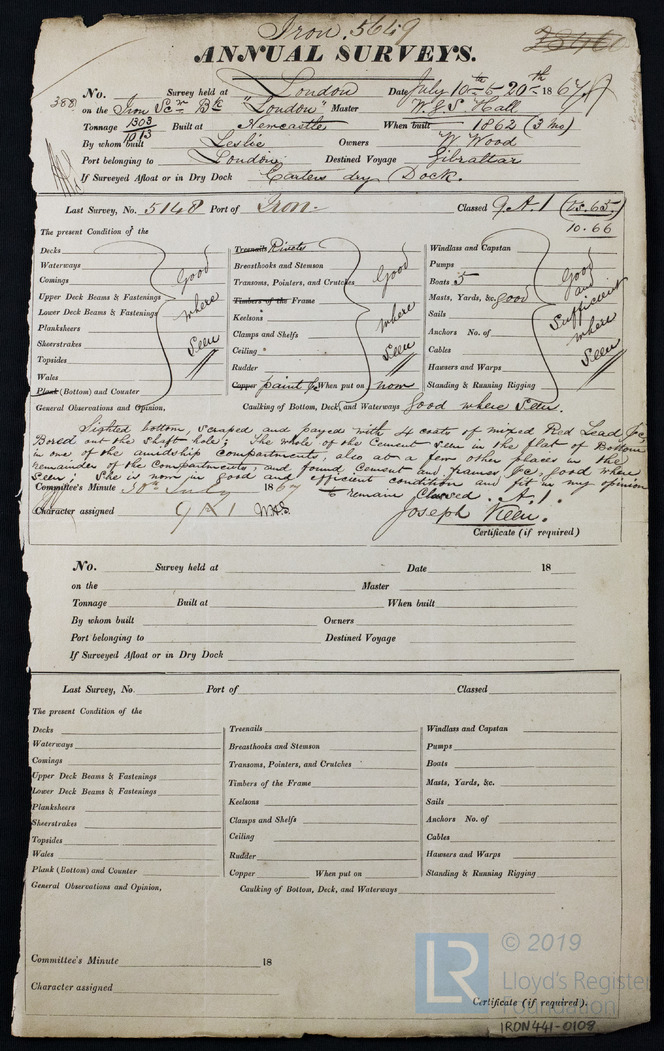 Iron 5649
ANNUAL SURVEYS.
388 No. Survey held at London Date July 10th & 20th 1867
on the Iron Scr Bk "London" Master W.G.S Hall
Tonnage 1303 / 1013 Built at Newcastle When built 1862 (3 mo)
By whom built Leslie Owners W Wood
Port belonging to London Destined Voyage Gibraltar
If Surveyed Afloat or in Dry Dock dry Dock.
Last Survey, No. 5148 Port of Iron Classed 9 A 1
10.66
The present Condition of the
Decks
Waterways
Comings
Upper Deck Beams & Fastenings
Lower Deck Beams & Fastenings
Planksheers
Sheerstrakes
Topsides
Wales
Plank (Bottom) and Counter
Good where Seen
Treenails Rivets
Breasthooks and Stemson
Transoms, Pointers, and Crutches
Timbers of the Frame
Keelsons
Clamps and Shelfs
Ceiling
Rudder
Copper paint &c When put on now
Good where Seen
Windlass and Capstan
Pumps
Boats 5
Masts, Yards, &c. good
Sails
Anchors No. of
Cables
Hawsers and Warps
Standing & Running Rigging
Good and Sufficient where Seen
General Observations and Opinion, Caulking of Bottom, Deck, and Waterways Good where Seen.
Sighted bottom, scraped and payed with 4 coats of mixed Red Lead &c
Bored out the shaft hole; The whole of the Cement seen in the flat of Bottom
in one of the amidship compartments, also at a few other places in the
remainder of the Compartments, and found Cement and frames &c, good where
Seen; She is now in good and efficient condition and fit in my opinion
to remain Classed. A.1.
Committee's Minute 30th July 1867
Character assigned 9 A 1
Joseph Keen.
Certificate (if required)
No. Survey held at Date 18
on the Master
Tonnage Built at When built
By whom built Owners
Port belonging to Destined Voyage
If Surveyed Afloat or in Dry Dock
Last Survey, No. Port of Classed
The present Condition of the
Decks
Waterways
Comings
Upper Deck Beams & Fastenings
Lower Deck Beams & Fastenings
Planksheers
Sheerstrakes
Topsides
Wales
Plank (Bottom) and Counter
Treenails
Breasthooks and Stemson
Transoms, Pointers, and Crutches
Timbers of the Frame
Keelsons
Clamps and Shelfs
Ceiling
Rudder
Copper When put on
Windlass and Capstan
Pumps
Boats
Masts, Yards, &c.
Sails
Anchors No. of
Cables
Hawsers and Warps
Standing & Running Rigging
General Observations and Opinion, Caulking of Bottom, Deck, and Waterways
Committee's Minute 18
Character assigned
Certificate (if required).
LR
© 2019
Lloyd's Register
Foundation
IRON441-0109